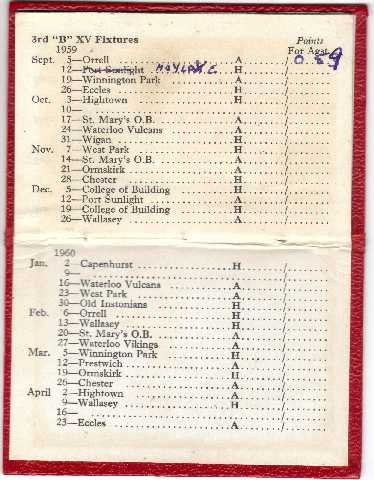 3rd "B" XV Fixtures Points
1959 For Agst.
Sept. 5—Orrell A 0
12—Port Sunlight HOYLAKE H
19—Winnington Park A
26—Eccles H
Oct. 3—Hightown H
10—
17—St. Mary's O.B. A
24—Waterloo Vulcans A
31—Wigan H
Nov. 7—West Park H
14—St. Mary's O.B. A
21—Ormskirk A
28—Chester H
Dec. 5—College of Building H
12—Port Sunlight A
19—College of Building H
26—Wallasey A
1960
Jan. 2—Capenhurst H
9—
16—Waterloo Vulcans A
23—West Park A
30—Old Instonians H
Feb. 6—Orrell H
13—Wallasey H
20—St. Mary's O.B. A
27—Waterloo Vikings A
Mar. 5—Winnington Park H
12—Prestwich A
19—Ormskirk H
26—Chester A
April 2—Hightown A
9—Wallasey H
16—
23—Eccles A